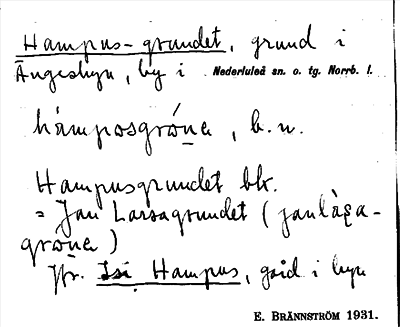 Hampus-grundet, grund i
Ängesbyn, by i Nederluleå sn. o. tg. Norrb. l.
hámposgróṉa, b.n.
Hampusgrundet blr.
= Jan Larsagrundet (janlàsa-
gróṉa)
Jfr. Isi Hampus, gård i byn
E. BRÄNNSTRÖM 1931.